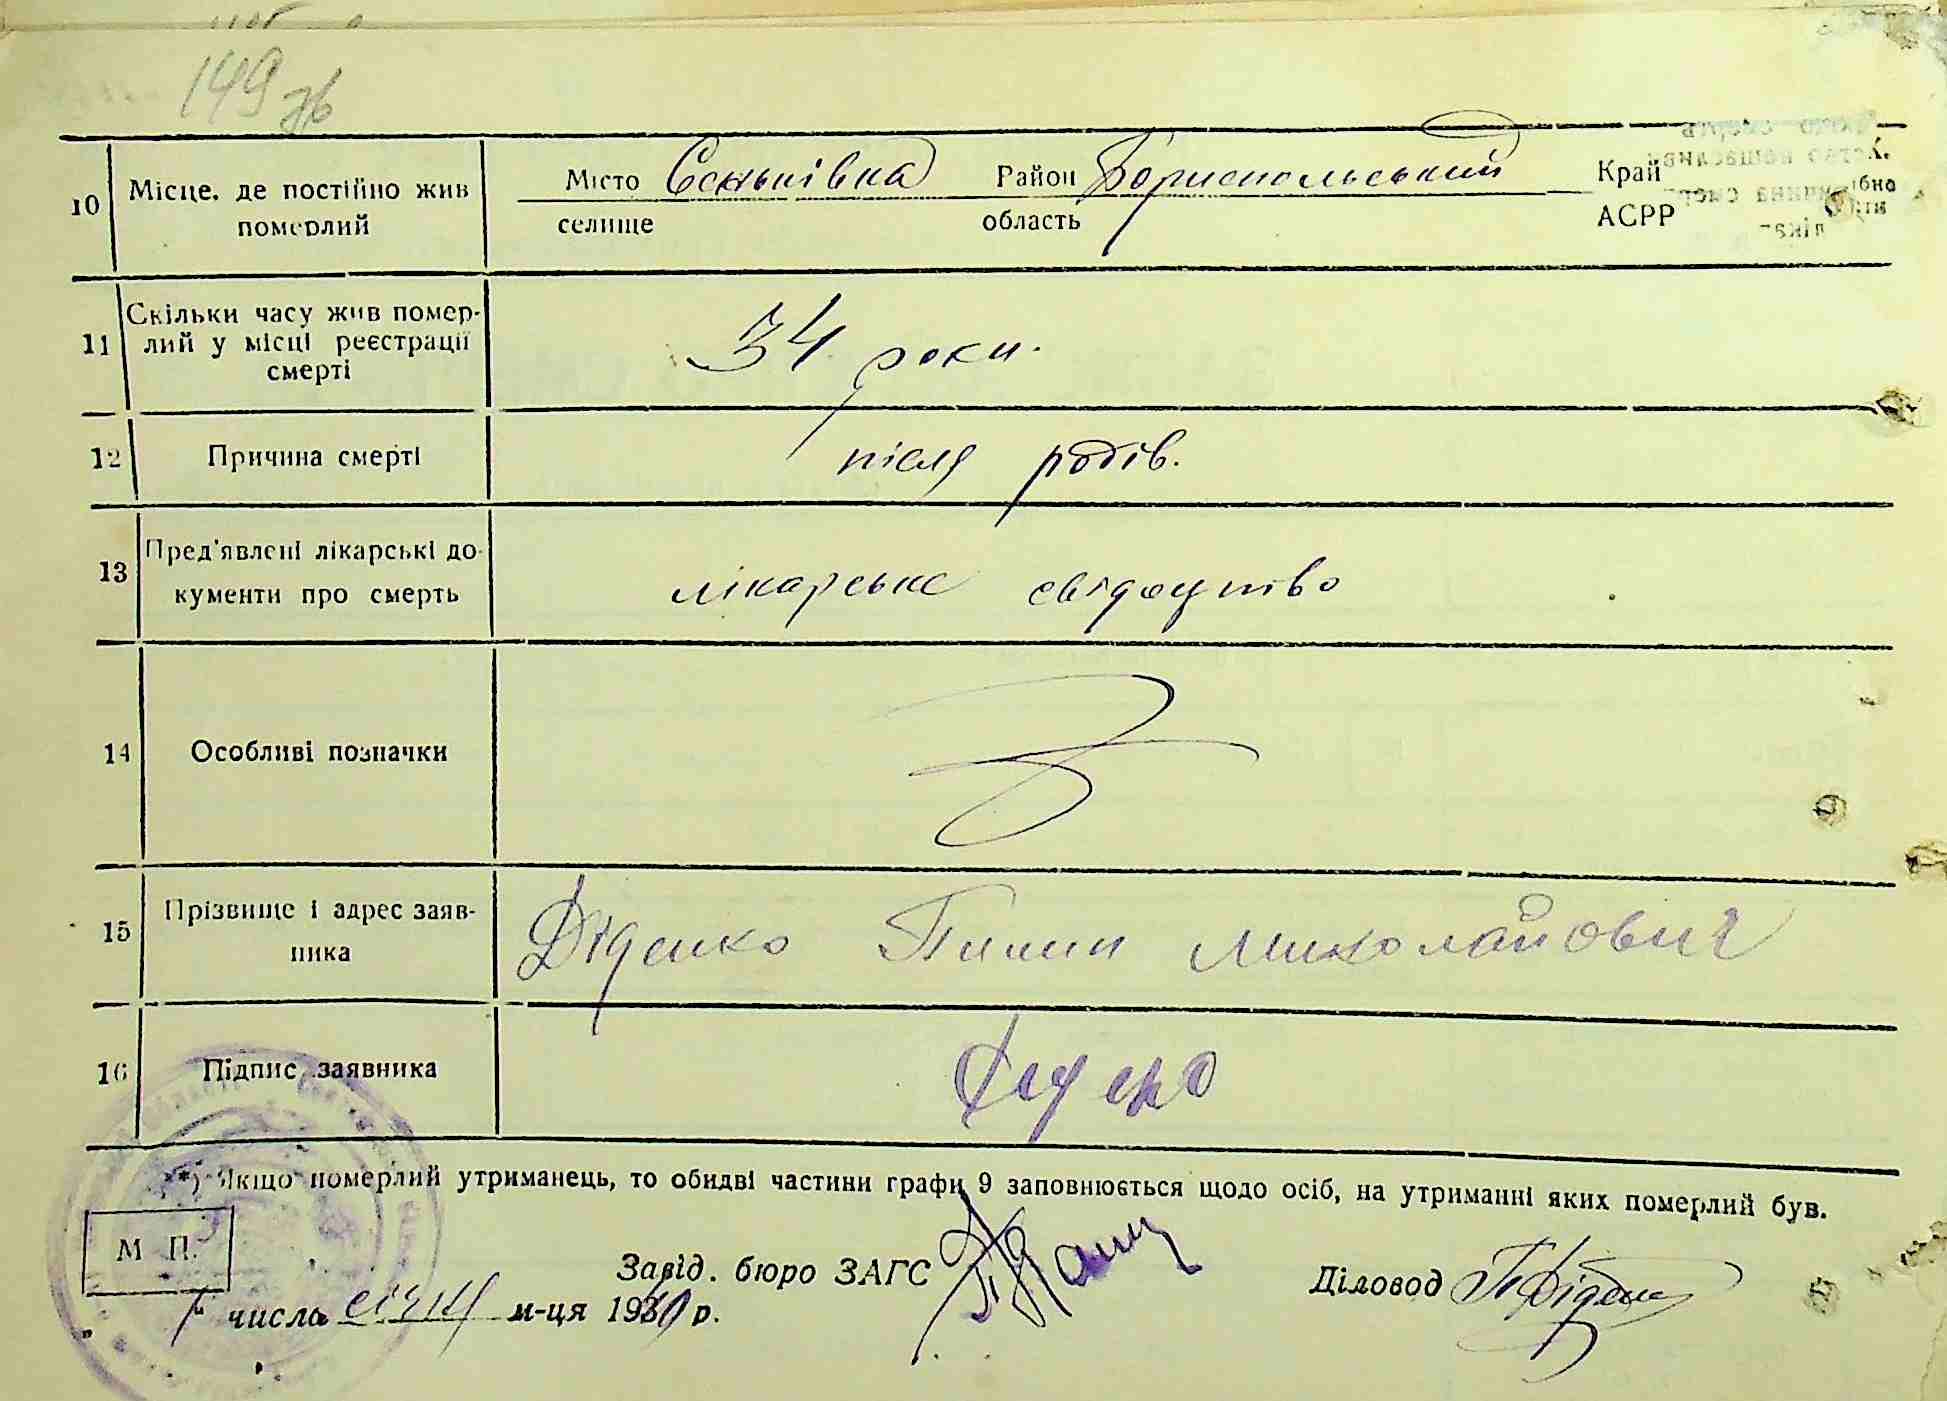 149 зв
10 Місце, де постійно жив Місто Сеньківка Район Бориспольський Край
померлий селище область АСРР
Скільки часу жив помер-
11 лий у місці реєстрації 34 роки.
смерті
12 Причина смерті після родів.
Пред'явлені лікарські до-
13 лікарське свідоцтво
кументи про смерть
14 Особливі позначки
15 Прізвище і адрес заяв- Діденко Пилип Миколайович
ника
16 Підпис заявника
**) Якщо померлий утриманець, то обидві частини графи 9 заповнюється щодо осіб, на утриманні яких померлий був.
М П.
Завід. бюро ЗАГС Діловод
числа січня м-ця 19 р.